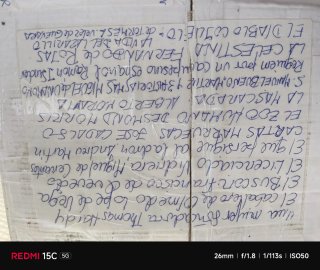 Una mujer soñadora Thomas Hardy
El caballero de Olmedo Lope de Vega
El Buscón Francisco de Quevedo
El Licenciado Vidriera, Miguel de Cervantes
El que persigue al ladron Andreu Martin
CARTAS MARRUECAS JOSE CADALSO
EL ZOO HUMANO DESMOND MORRIS
LA MASCARADA ALBERTO MORAVIA
S. MANUEL BUENO MARTIR Y 3 HISTORIAS MAS MIGUEL DE UNAMUNO
Requiem por un campesino español Ramón J Sender
LA CELESTINA FERNANDO DE ROJAS
LA VIDA DEL LAZARILLO
DE TORMES
EL DIABLO COJUELO: L. VELEZ DE GUEVARA
REDMI 15C 5G
26mm | f/1.8 | 1/113s | ISO50